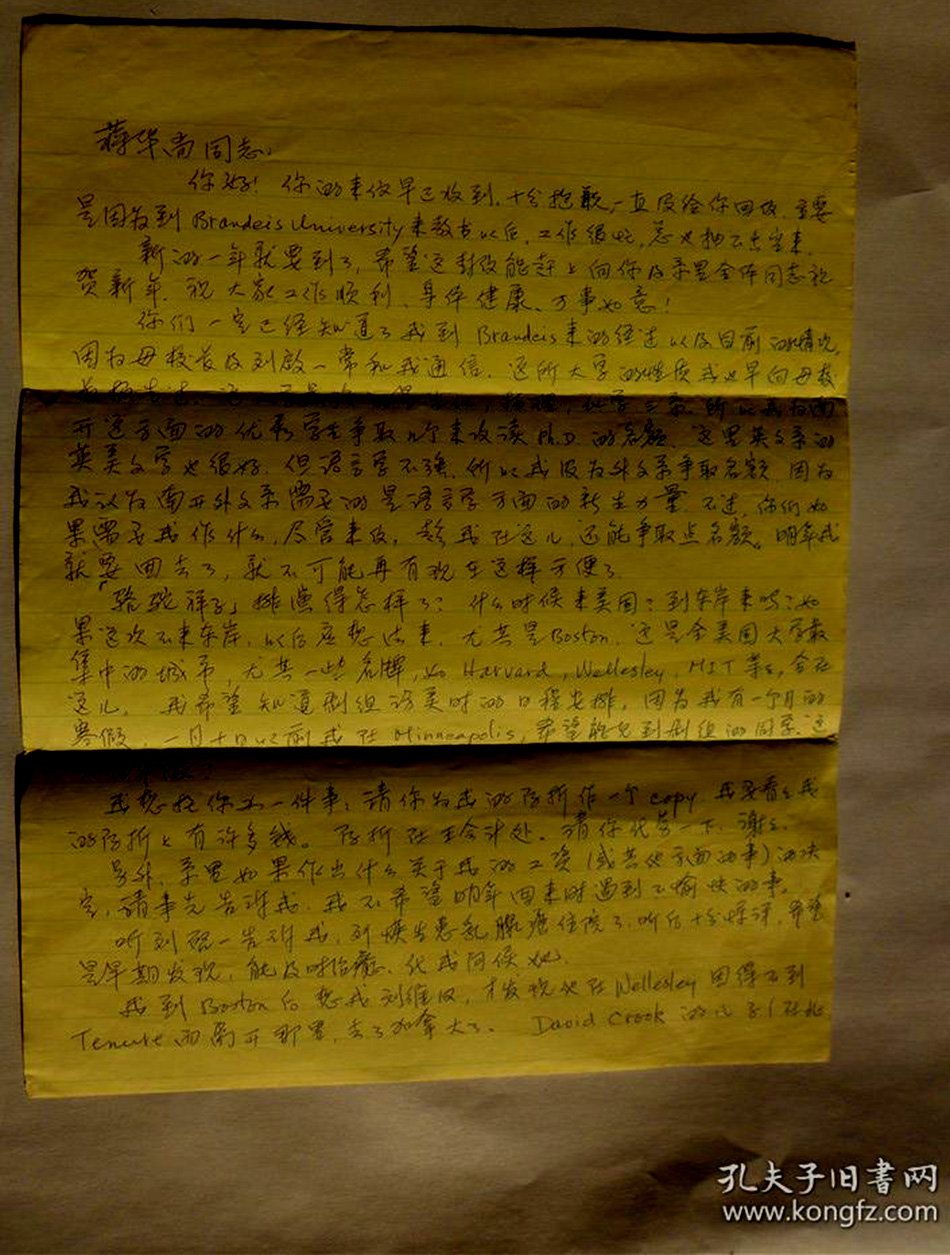 蒋华尚同志：
你好！你的来信早已收到，十分抱歉，一直没给你回信，主要
是因为到Brandeis University来教书以后，工作很忙，总也抽不出空来。
新的一年就要到了，希望这封信能赶上向你及系里全体同志祝
贺新年。祝大家工作顺利、身体健康、万事如意！
你们一定已经知道了我到Brandeis来的经过以及目前的情况，
因为母校长及刘 一常和我通信。这所大学的性质我也早向母校
物理，化学 所以我为南
开这方面的优秀学生争取几个来攻读Ph.D的名额。这里英文系的
英美文学也很好，但语言学不强，所以我没为外文系争取名额，因为
我认为南开外文系需要的是语言学方面的新生力量。不过，你们如
果需要我作什么，尽管来信，趁我在这儿，还能争取点名额。明年我
就要回去了，就不可能再有现在这样方便了。
「骆驼祥子」排演得怎样了？什么时候来美国？到东岸来吗？如
果这次不来东岸，以后应想法来，尤其是Boston，这是全美国大学最
集中的城市，尤其一些名牌，如Harvard, Wellesley, MIT等等，全在
这儿。我希望知道剧组访美时的日程安排，因为我有一个月的
寒假，一月十日以前我在Minneapolis，希望能见到剧组的同学。这
我想托你办一件事：请你为我的存折作一个copy，我要看看我
的存折上有许多钱。存折在王会计处。请你代劳一下，谢谢。
另外，系里如果作出什么关于我的工资（或其他方面的事）的决
定，请事先告诉我，我不希望明年回来时遇到不愉快的事。
听到 一告诉我，刘 患乳腺癌住院了，听后十分惊讶，希望
是早期发现，能及时治愈。代我问候她。
我到Boston后想找刘维汉，才发现他在Wellesley因得不到
Tenure而离开那里，去了加拿大了。David Crook的儿子（在北
孔夫子旧书网
www.kongfz.com